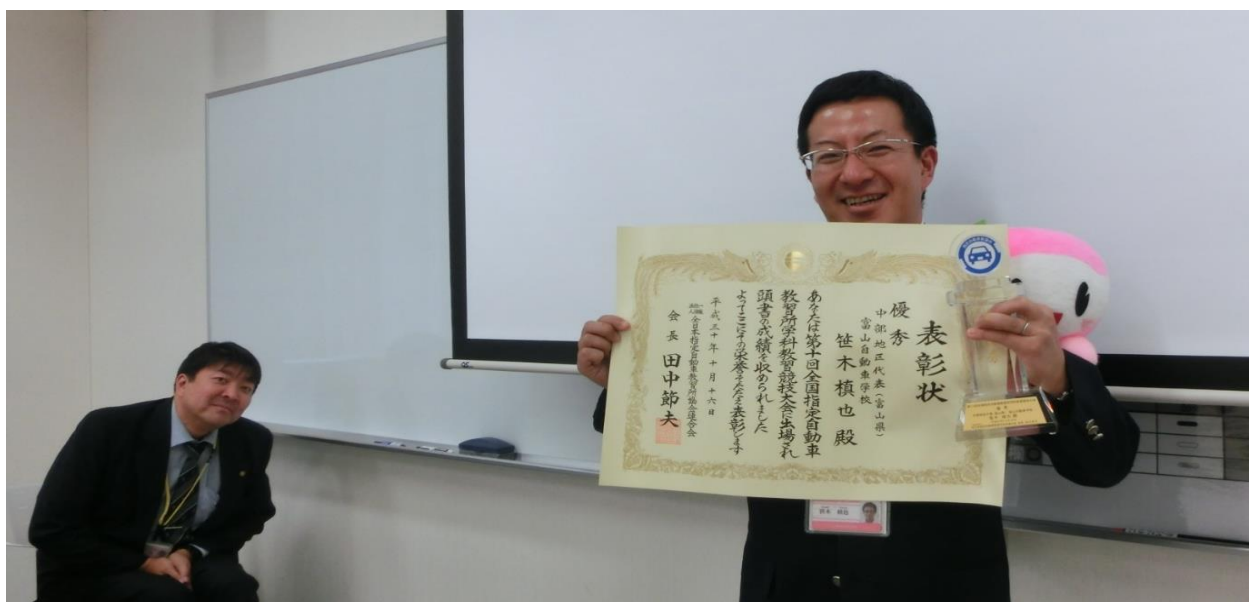 表彰状
優秀
中部地区代表(富山県)
富山自動車学校
笹木槙也殿
あなたは第十回全国指定自動車
教習所学科教習競技大会に出場され
頭書の成績を収められました
よってここにその栄誉をたたえ表彰します
平成三十年十月十六日
一般社団法人全日本指定自動車教習所協会連合会
会長 田中節夫